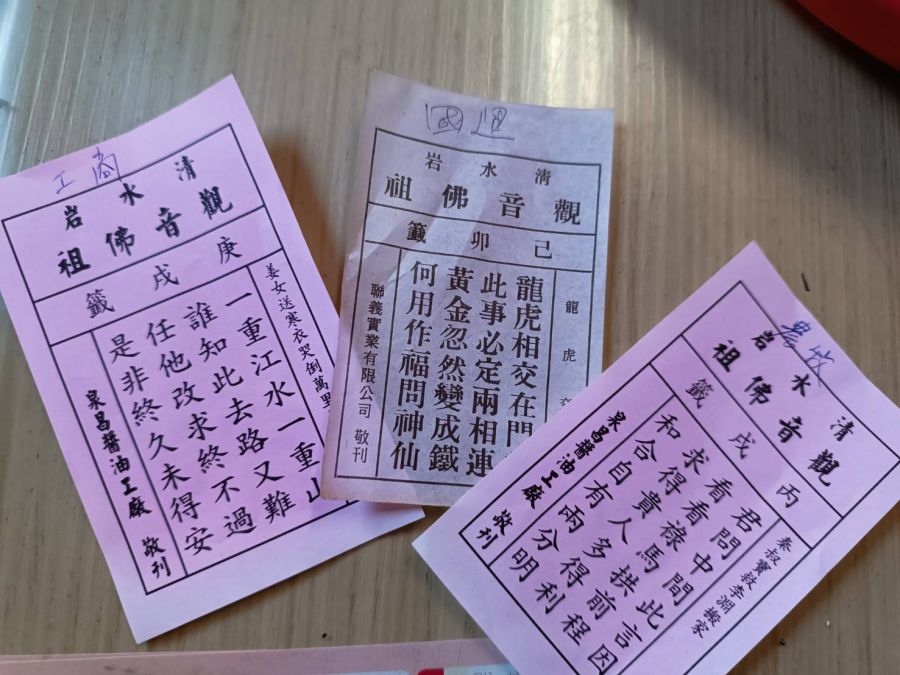 工商
清水岩
觀音佛祖
庚戌籤
姜女送寒衣哭倒萬里
一重江水一重山
誰知此去路又難
任他改求終不過
是非終久未得安
泉昌醬油工廠 敬刊
國運
清水岩
觀音佛祖
己卯籤
龍虎交
龍虎相交在門
此事必定兩相連
黃金忽然變成鐵
何用作福問神仙
聯義實業有限公司 敬刊
農牧
清水岩
觀音佛祖
丙戌籤
秦叔寶救李淵搬家
君問中間此言因
看看祿馬拱前程
求得貴人多得利
和合自有兩分明
泉昌醬油工廠 敬刊